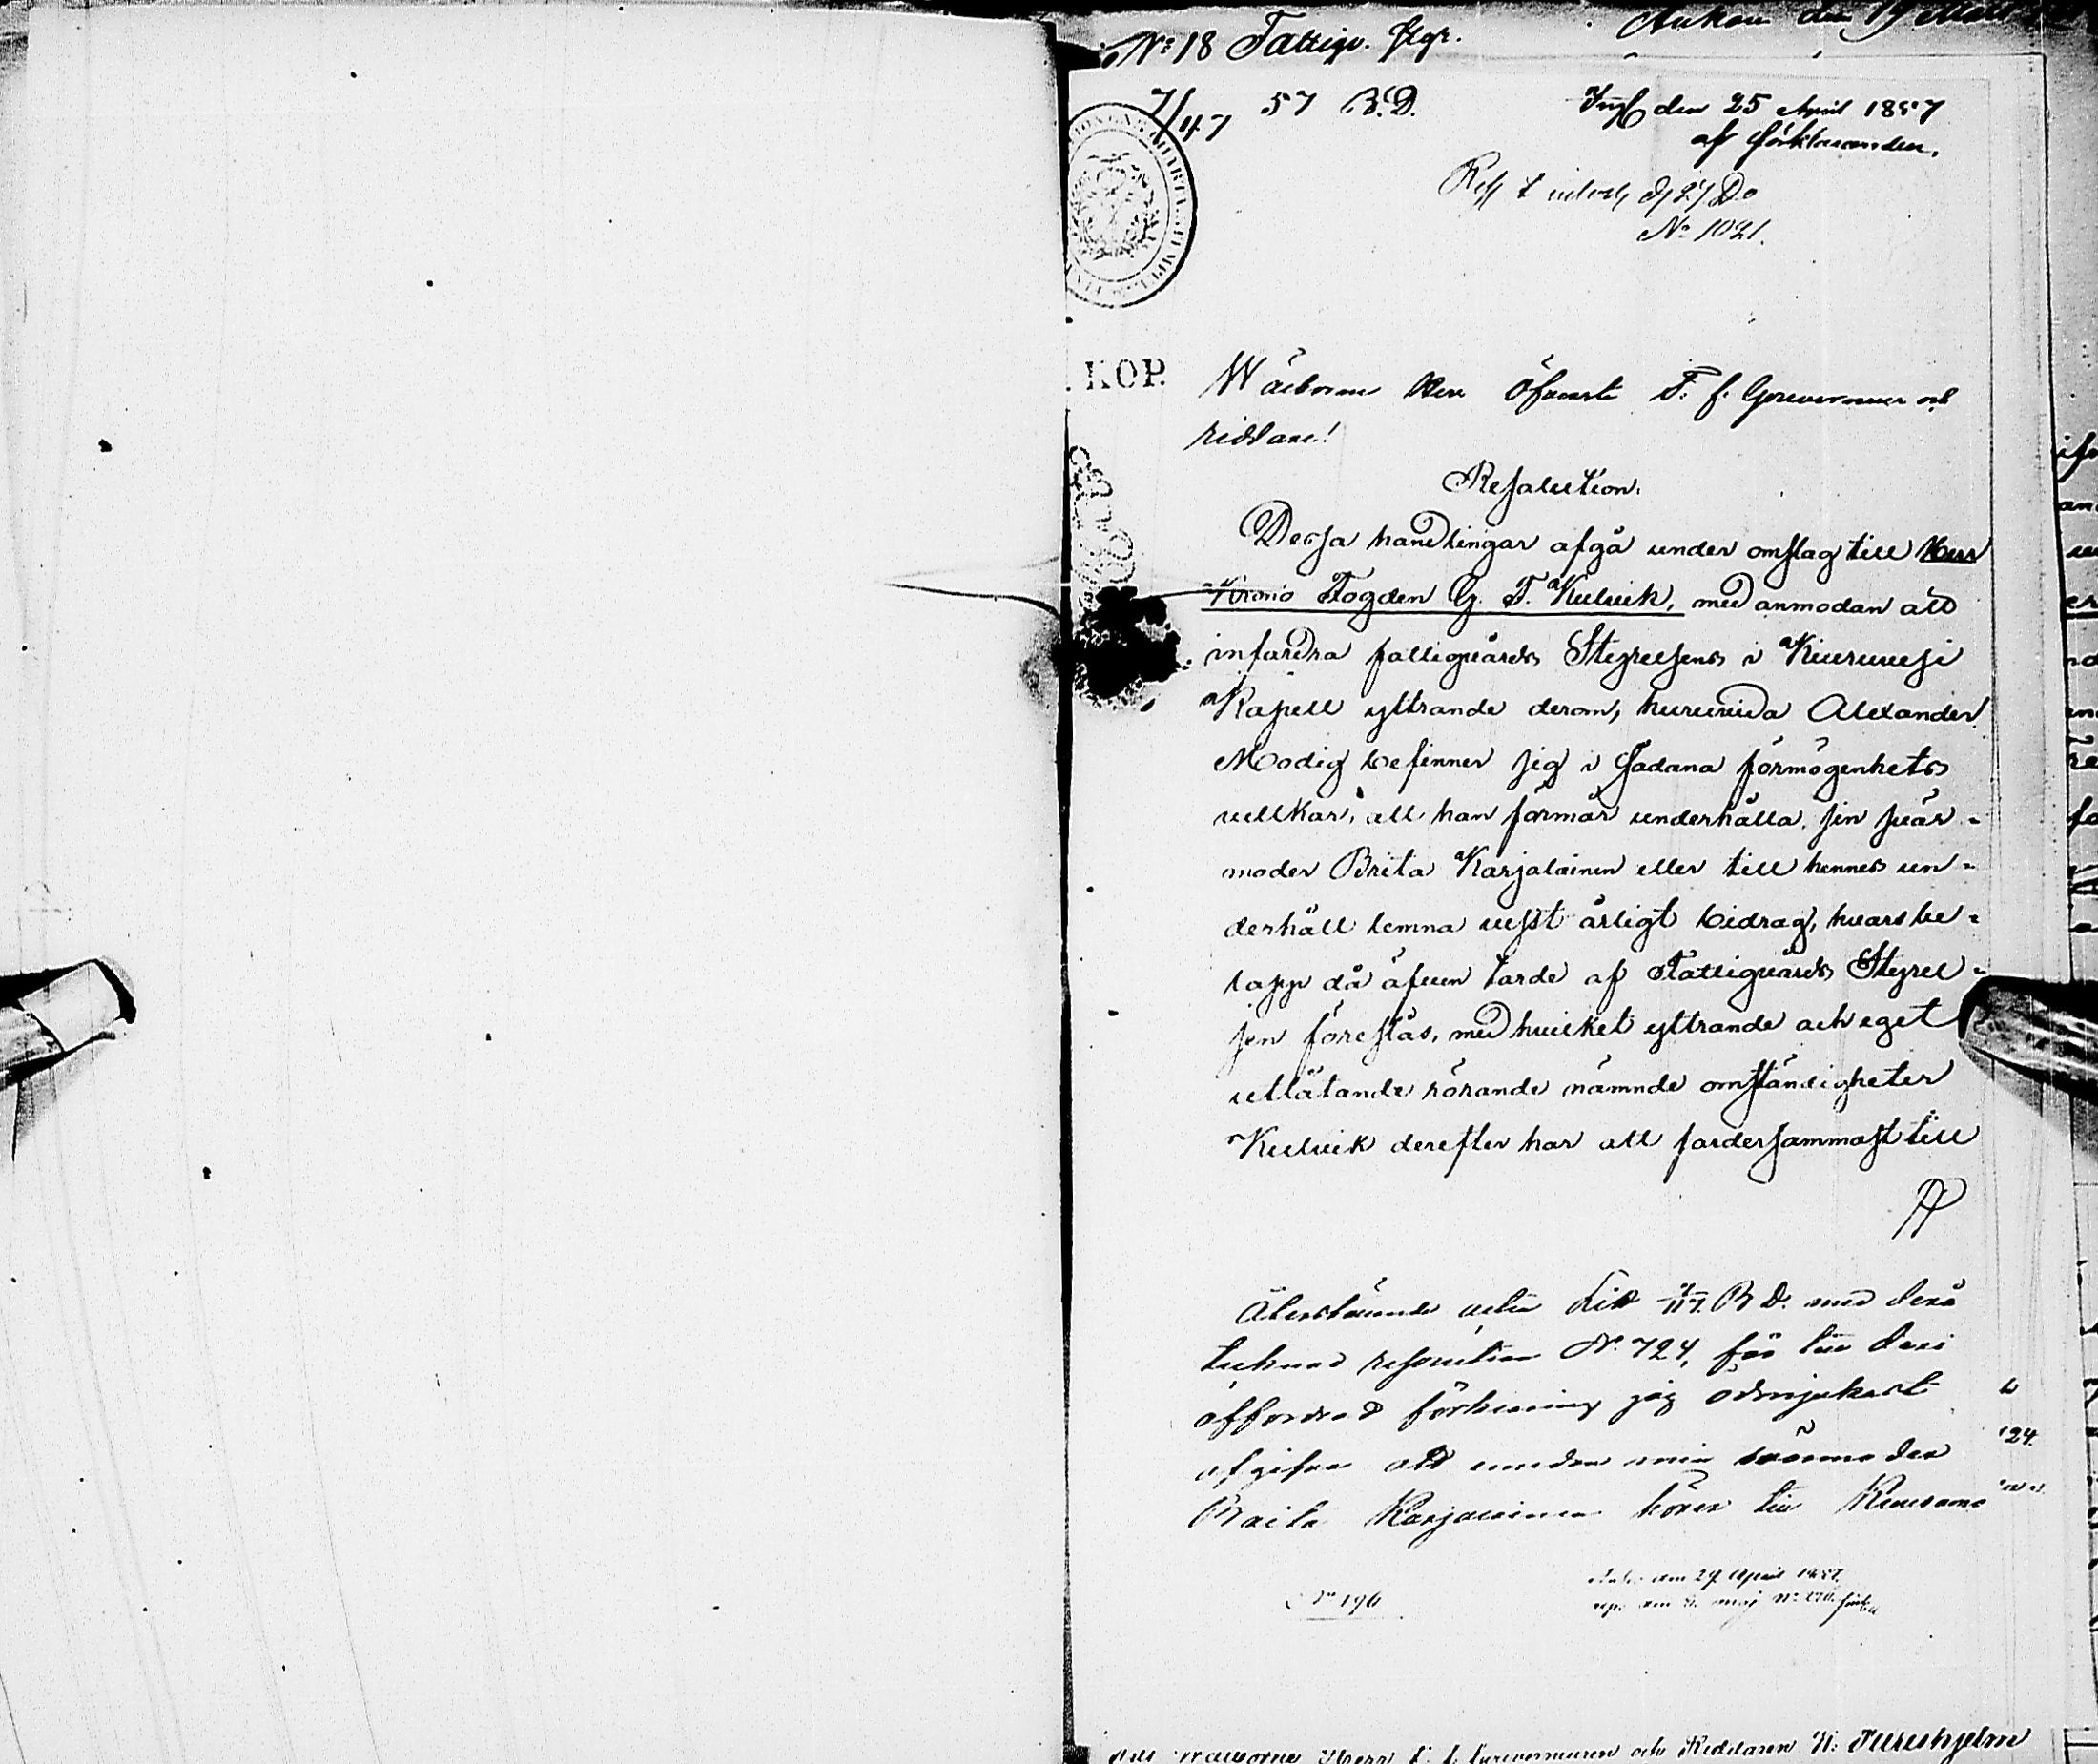 No 18 Fattigv. flgr.
den 19 Mars
7/47 57 B.D.
Ingl den 25 April 1857
af förklaranden.
No 1021.
KOP.
Wälborne Herr Öfverste T. f. Gouverneur och
riddare!
Resolution.
Dessa handlingar afgå under omslag till Herr
Krono Fogden G. F. Kulvik, med anmodan att
infordra fattigvårds Styrelsens i Kiuruvesi
Kapell yttrande derom, huruvida Alexander
Modig befinner sig i sådana förmögenhets
vilkor, att han förmår underhålla sin svär-
moder Brita Karjalainen eller till hennes un-
derhåll lemna visst årligt bidrag, hvars be-
lopp då äfven torde af Fattigvårds Styrel-
sen föreslås, med hvilket yttrande och eget
utlåtande rörande nämnde omständigheter
Kulvik derefter har att fordersammast till
Återställande acten Litt 7/47. B D. med derå
tecknad resolution No. 724, får till deri
affordrad förklaring jag ödmjukast
afgifva att emedan min svärmoder
Braita Karjalainen hörer till Kuusamo
24.
No 196
den 29 April 1857.
den maj No
Wälborne Herr T. f. Gouverneuren och Riddaren